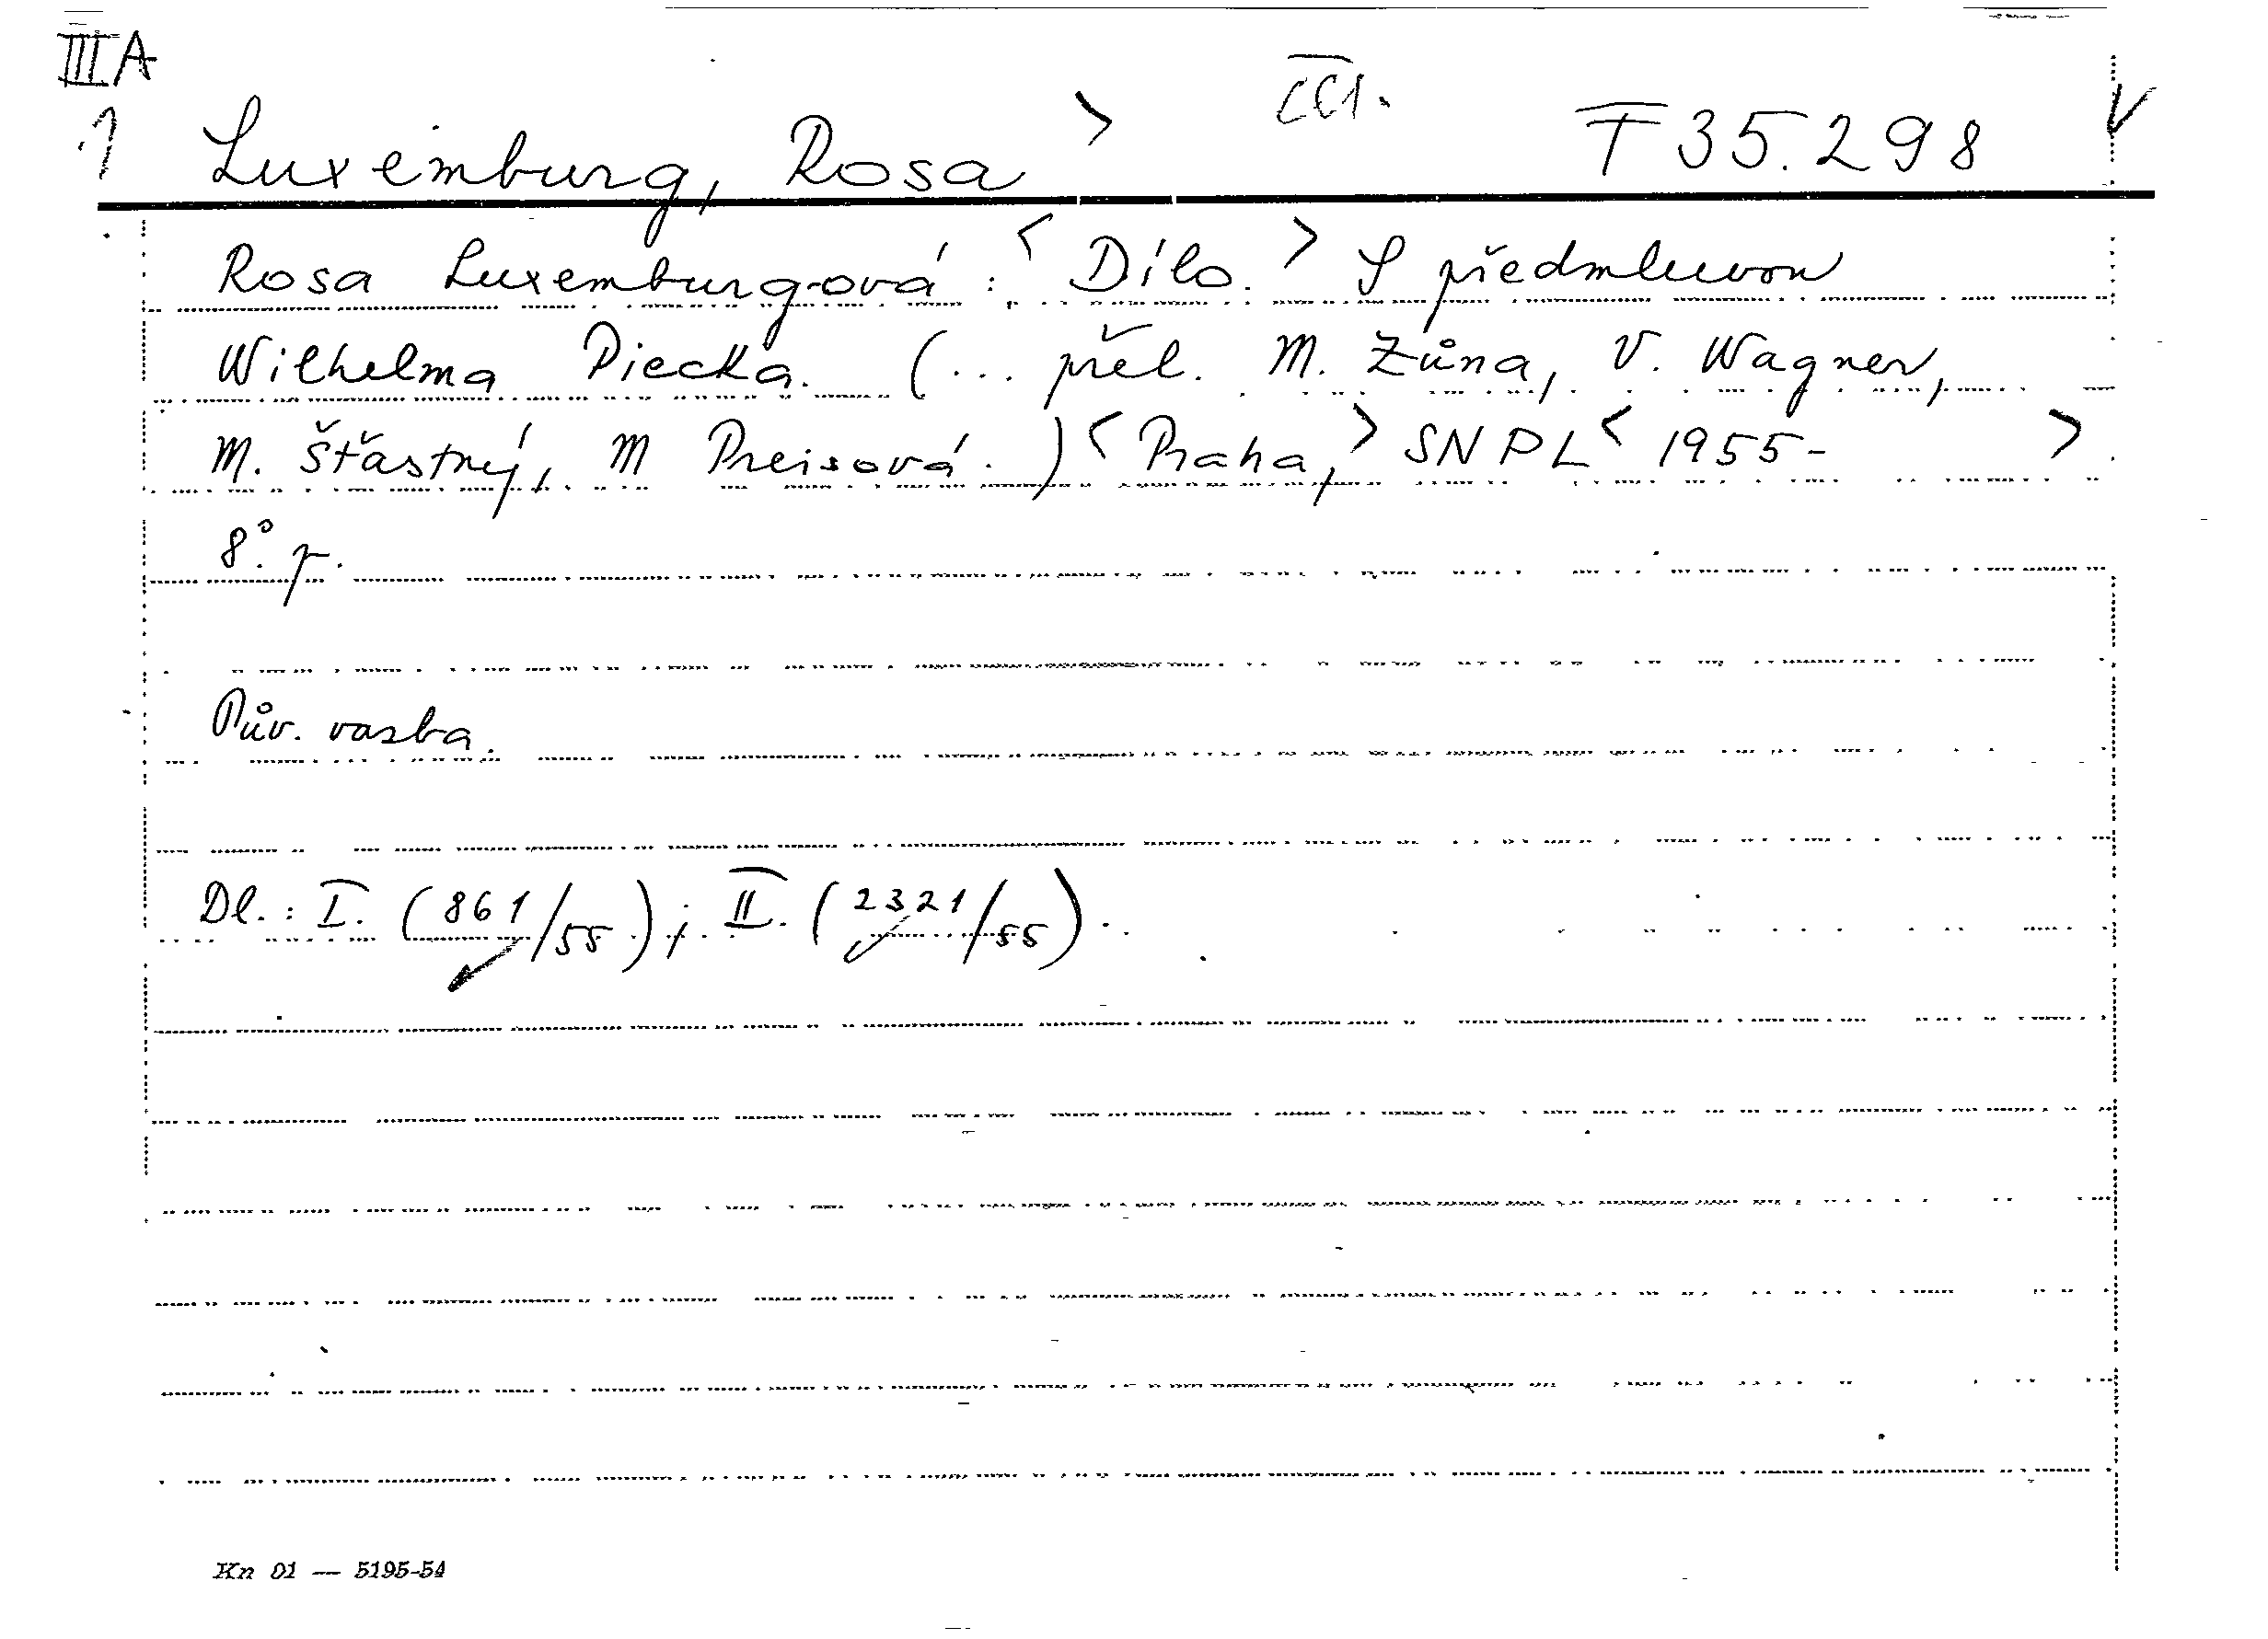 III A
1 Luxemburg, Rosa > F 35.298 V
Rosa Luxemburgová: < Dílo. > S předmluvou
Wilhelma Piecka. (... přel. M. Zůna, V. Wagner,
M. Šťastný, M Preisová.) < Praha, > SNPL < 1955- >
8°. p.
Pův. vazba.
Dl.: I. (861/55); II. (2321/55).
Kn 01 — 5195-54